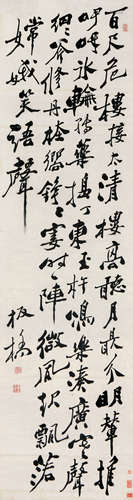 百尺危樓接太清樓高聽月最分明
冰輪轉藥搗丁東玉杵鳴樂奏廣寒聲
細細斧修丹桂響錚錚霎時一陣微風起飄落
嫦娥笑語聲
板橋